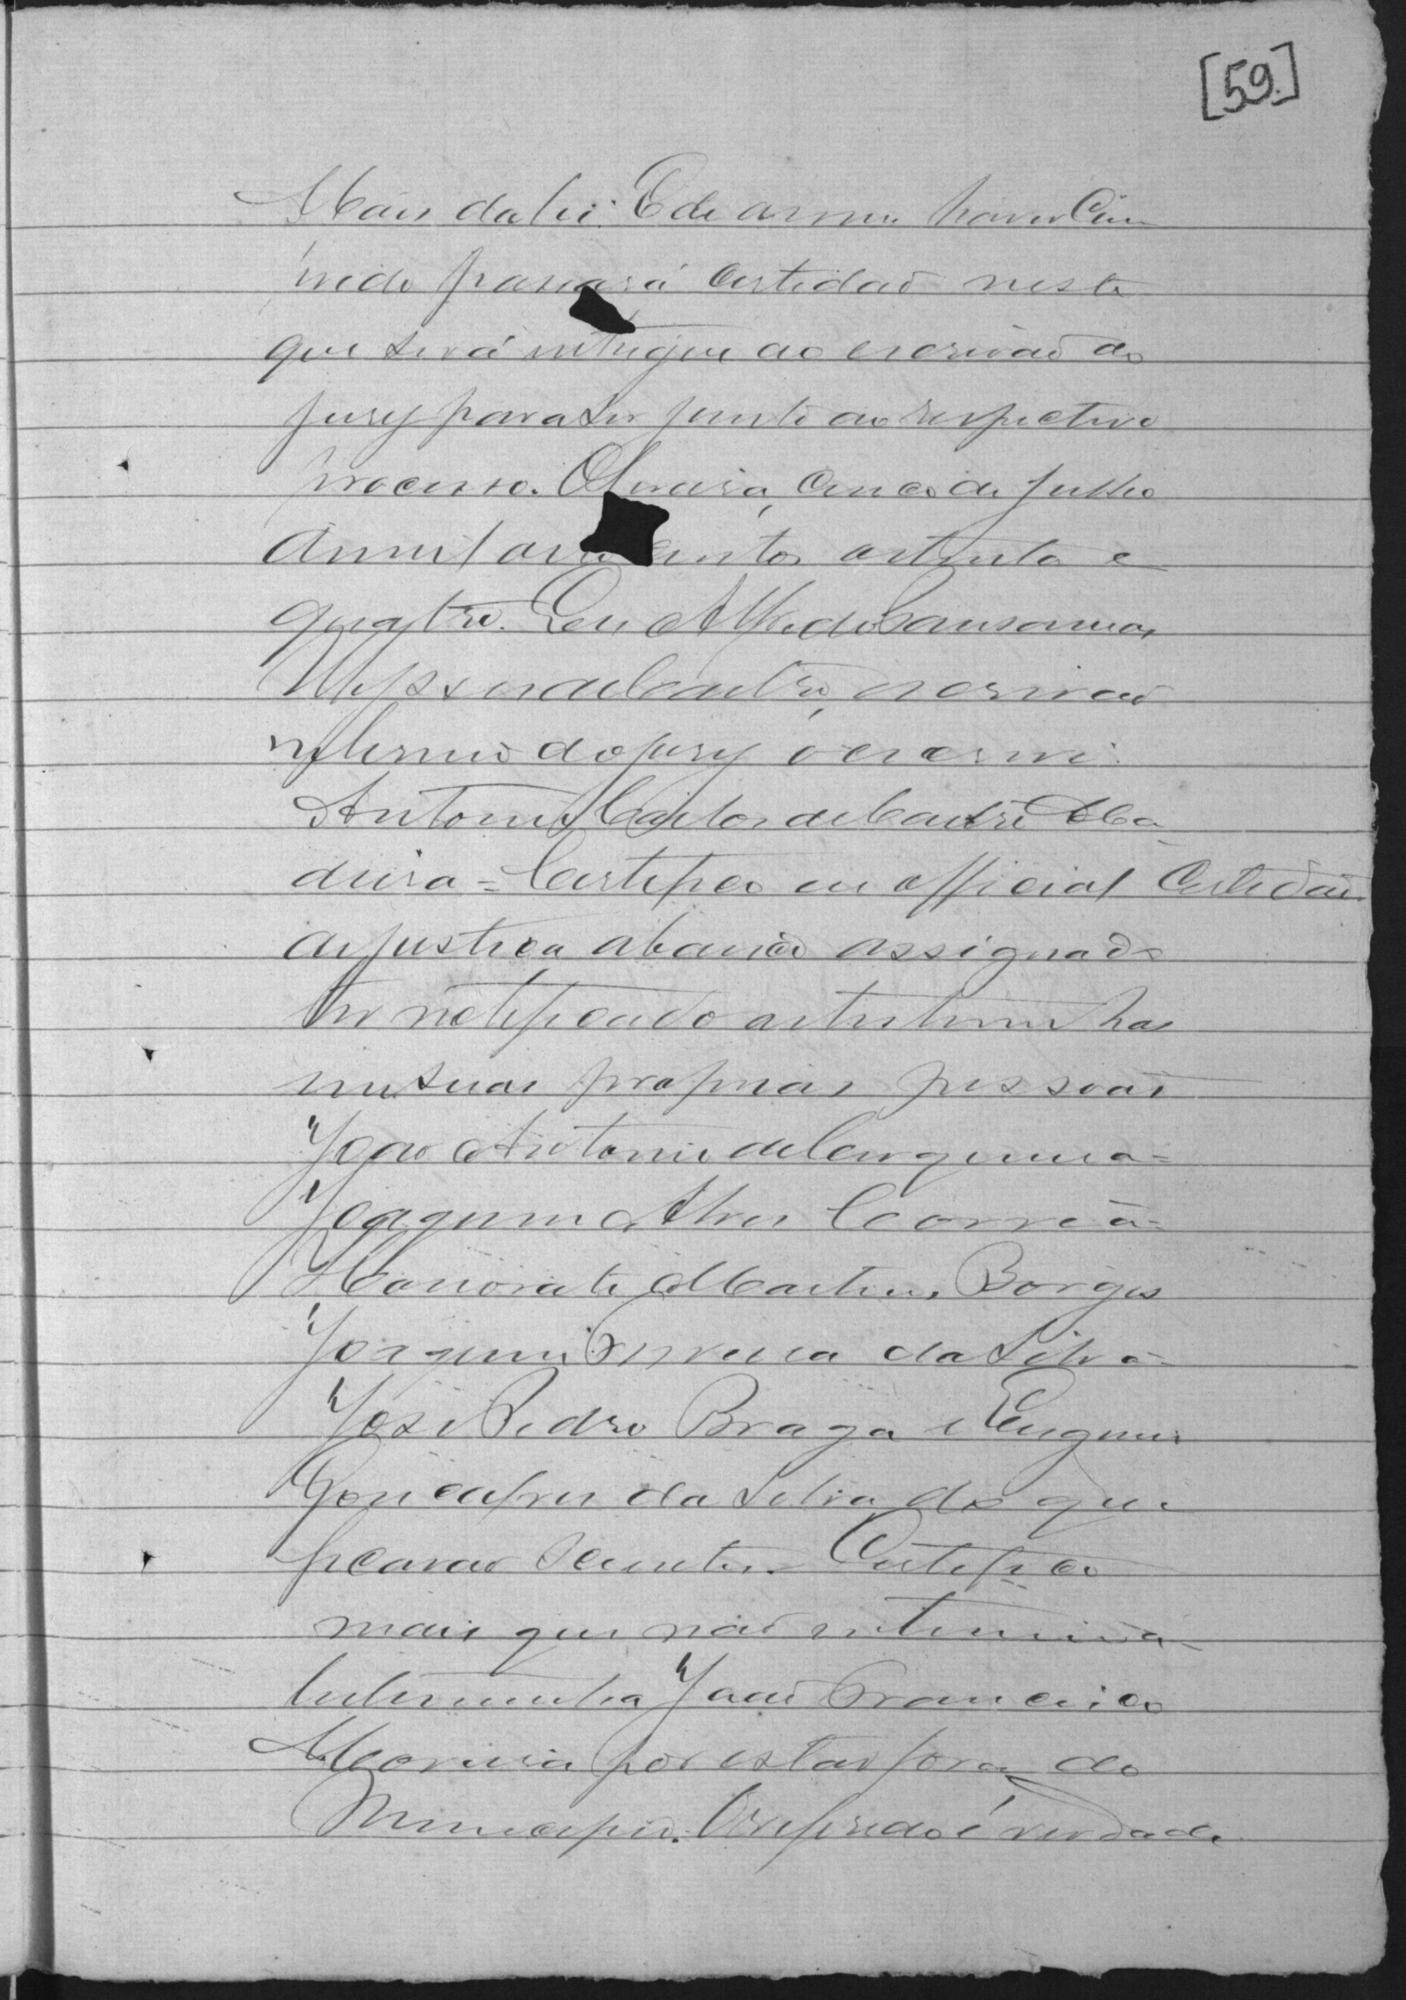 [59.]
Mais da lei. E de assim haver Cum
prido passará Certidão nesta
que será entregue ao escrivão do
jury para ser junto ao respectivo
processo. Oliveira, cinco de Julho
de mil oi entos e trinta e
quatro. Eu Alfredo
de Castro, escrivão
interino do jury o escrevi.
Antonio Carlos de Castro Ma
deira = Certifico eu official Certidão
de justiça abaixo assignado
ter notificado as testemunhas
em suas proprias pessoas
João Antonio de Cerqueira =
Joaquim Alves Corrêa =
Honorato Martins Borges
Joaquim Ferreira da Silva =
José Pedro Braga e Eugenio
Gonçalves da Silva, do que
ficarão scientes. Certifico
mais que não intimei a
testemunha João Francisco
Moreira por estar fora do
Municipio. O referido é verdade